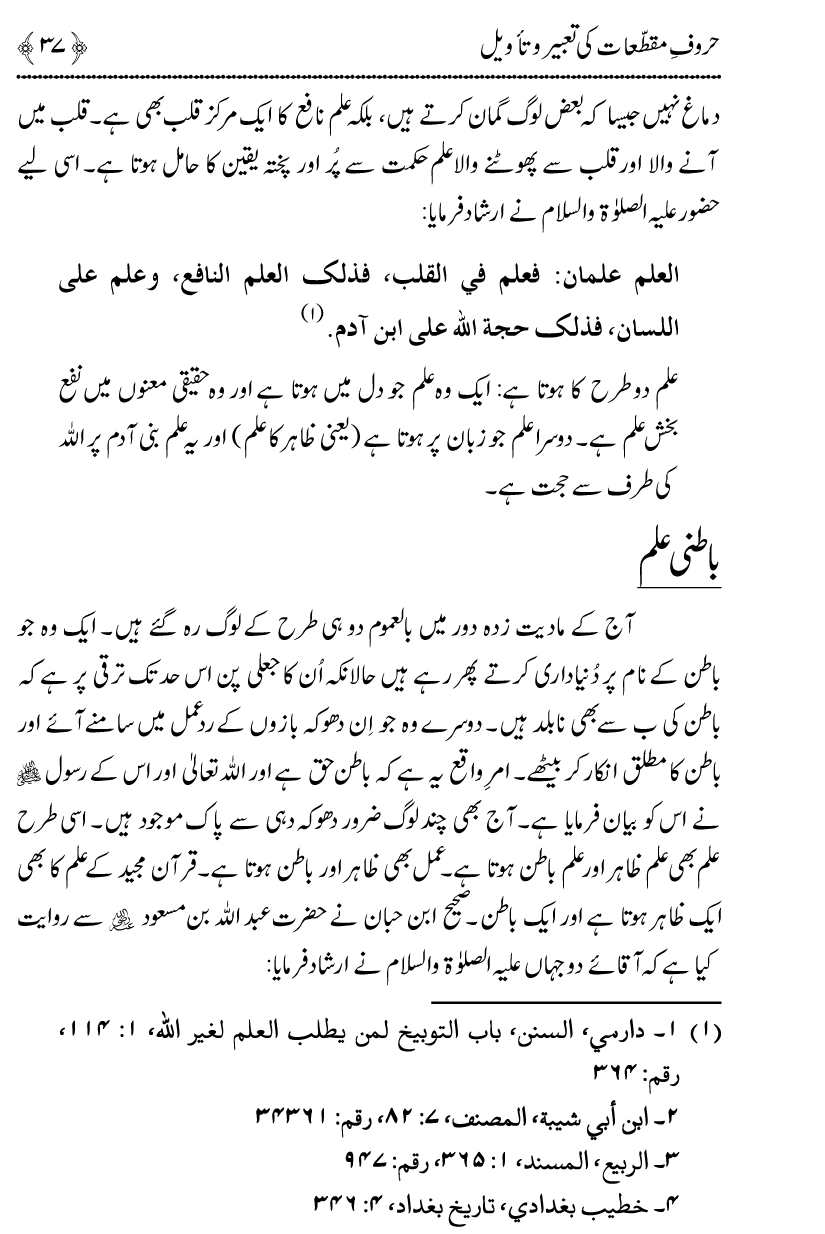 حروفِ مقطّعات کی تعبیر و تأویل ﴿۳۷﴾
دماغ نہیں جیسا کہ بعض لوگ گمان کرتے ہیں، بلکہ علم نافع کا ایک مرکز قلب بھی ہے۔ قلب میں
آنے والا اور قلب سے پھوٹنے والا علم حکمت سے پُر اور پختہ یقین کا حامل ہوتا ہے۔ اسی لیے
حضور علیہ الصلوٰۃ والسلام نے ارشاد فرمایا:
العلم علمان: فعلم في القلب، فذلک العلم النافع، وعلم على
اللسان، فذلک حجة الله على ابن آدم.(۱)
علم دو طرح کا ہوتا ہے: ایک وہ علم جو دل میں ہوتا ہے اور وہ حقیقی معنوں میں نفع
بخش علم ہے۔ دوسرا علم جو زبان پر ہوتا ہے (یعنی ظاہر کا علم) اور یہ علم بنی آدم پر اللہ
کی طرف سے حجت ہے۔
باطنی علم
آج کے مادیت زدہ دور میں بالعموم دو ہی طرح کے لوگ رہ گئے ہیں۔ ایک وہ جو
باطن کے نام پر دُنیاداری کرتے پھر رہے ہیں حالانکہ اُن کا جعلی پن اس حد تک ترقی پر ہے کہ
باطن کی ب سے بھی نابلد ہیں۔ دوسرے وہ جو اِن دھوکہ بازوں کے ردعمل میں سامنے آئے اور
باطن کا مطلق انکار کر بیٹھے۔ امرِ واقع یہ ہے کہ باطن حق ہے اور اللہ تعالیٰ اور اس کے رسول ﷺ
نے اس کو بیان فرمایا ہے۔ آج بھی چند لوگ ضرور دھوکہ دہی سے پاک موجود ہیں۔ اسی طرح
علم بھی علم ظاہر اور علم باطن ہوتا ہے۔ عمل بھی ظاہر اور باطن ہوتا ہے۔ قرآن مجید کے علم کا بھی
ایک ظاہر ہوتا ہے اور ایک باطن۔ صحیح ابن حبان نے حضرت عبد اللہ بن مسعود ؓ سے روایت
کیا ہے کہ آقائے دو جہاں علیہ الصلوٰۃ والسلام نے ارشاد فرمایا:
(۱) ۱۔ دارمي، السنن، باب التوبيخ لمن يطلب العلم لغير الله، ۱: ۱۱۴،
رقم: ۳۶۴
۲۔ ابن أبي شيبة، المصنف، ۷: ۸۲، رقم: ۳۴۳۶۱
۳۔ الربيع، المسند، ۱: ۳۶۵، رقم: ۹۴۷
۴۔ خطيب بغدادي، تاريخ بغداد، ۴: ۳۴۶